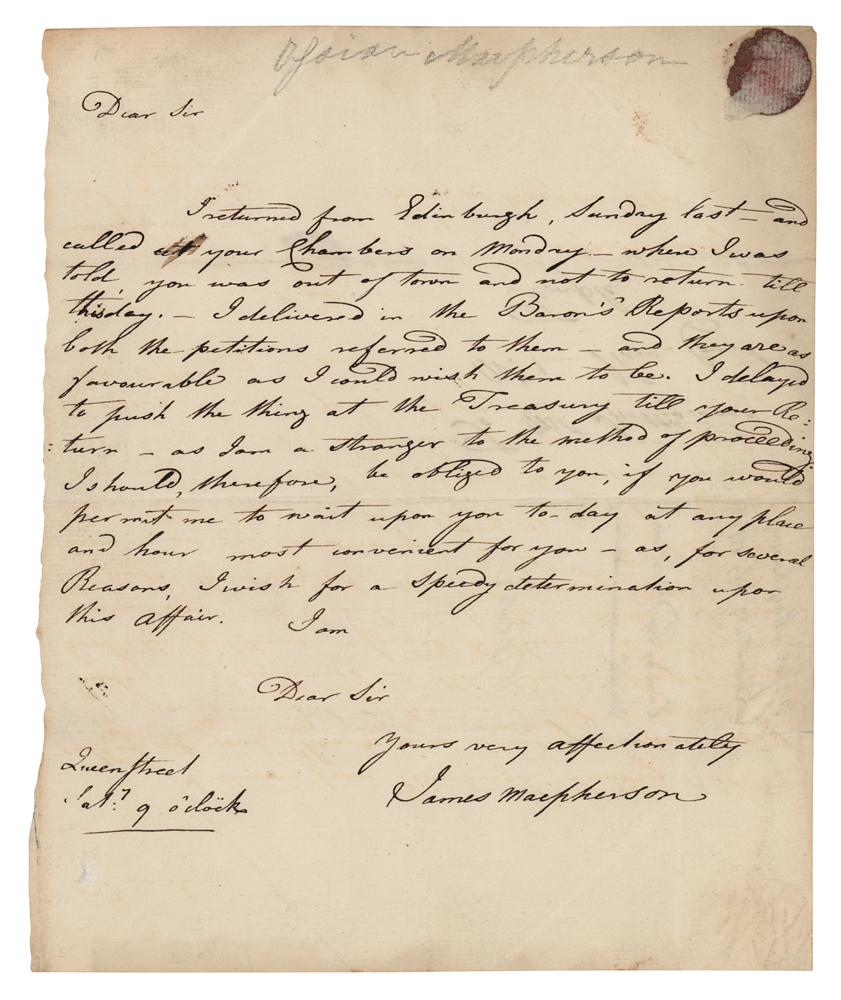 Ossian Macpherson
Dear Sir
I returned from Edinburgh, Sunday last — and
called at your Chambers on Monday — where I was
told, you was out of town and not to return till
this day. — I delivered in the Baron's Reports upon
both the petitions referred to them — and they are as
favourable as I could wish them to be. I delayed
to push the thing at the Treasury till your Re:
:turn — as I am a stranger to the method of proceeding:
I should, therefore, be obliged to you, if you would
permit me to wait upon you to-day at any place
and hour most convenient for you — as, for several
Reasons, I wish for a speedy determination upon
this affair. I am
Dear Sir
Yours very affectionately
James Macpherson
Queen Street
Sat:y 9 o'clock